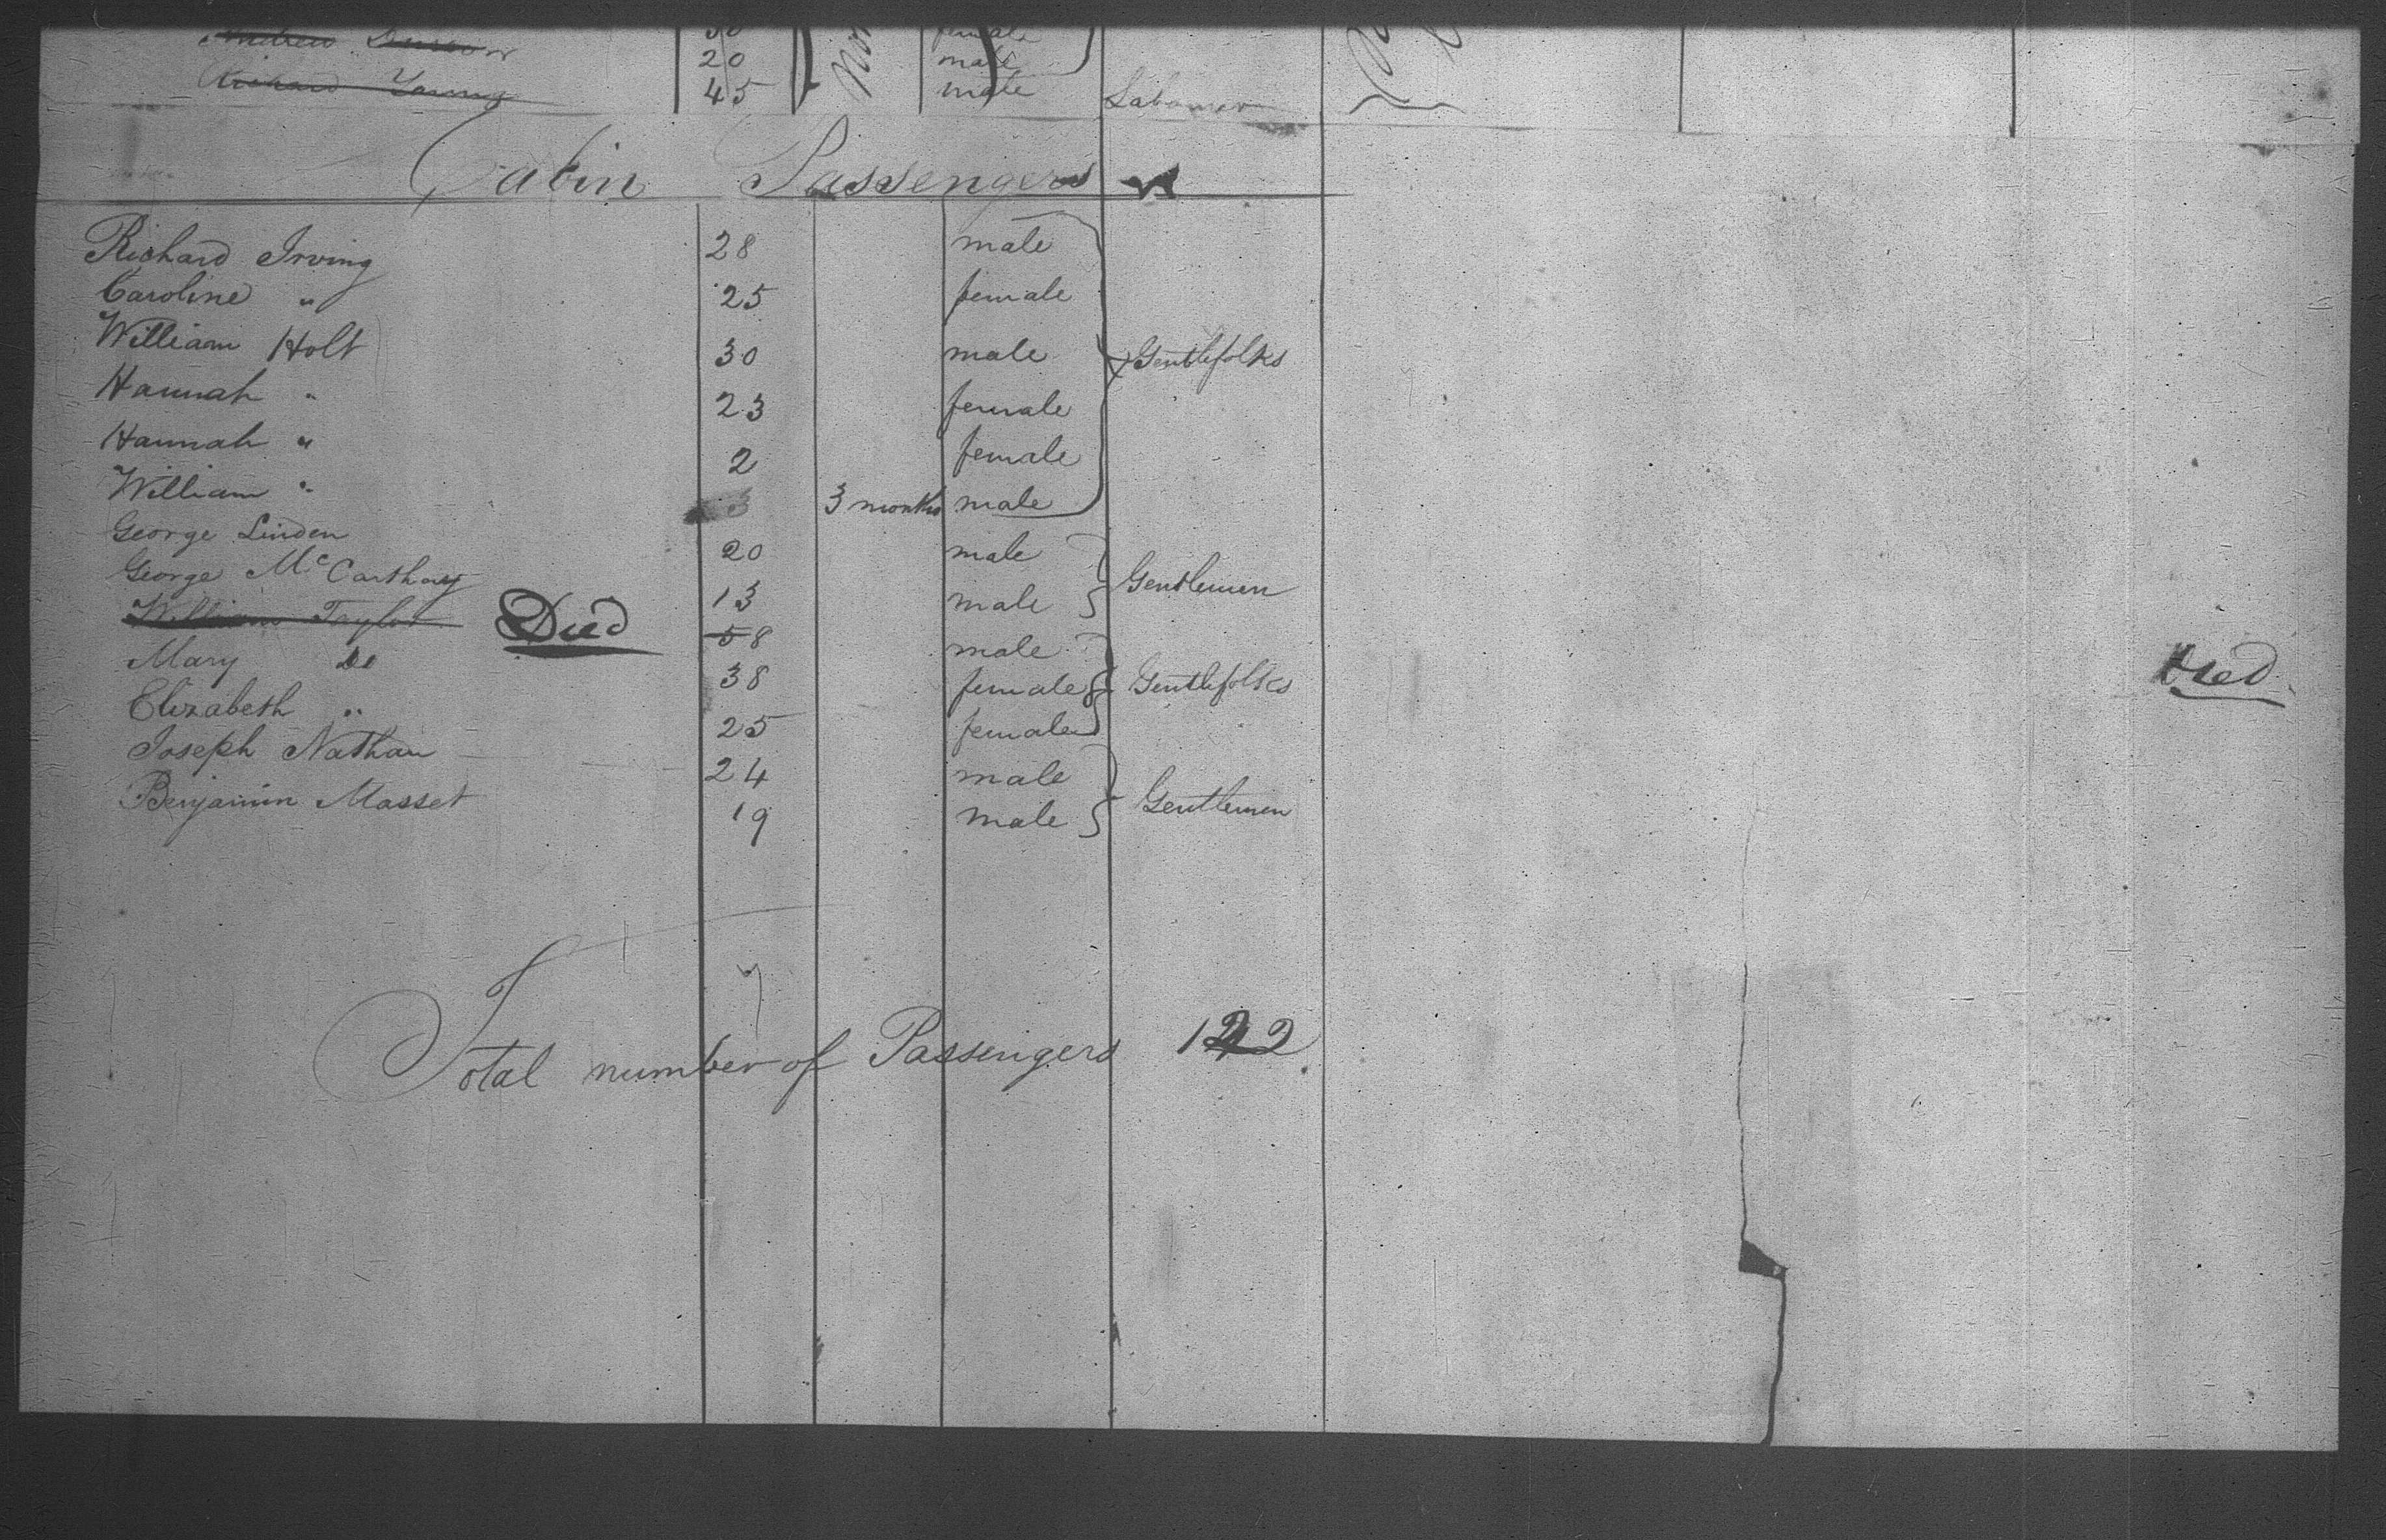 20 male
Richard Young 45 male Labourer
Cabin Passengers
Richard Irving 28 male
Caroline " 25 female
William Holt 30 male Gentlefolks
Hannah " 23 female
Hannah " 2 female
William " 3 3 months male
George Linden 20 male
George McCarthay 13 male Gentlemen
William Taylor Died 58 male
Mary Do 38 female Gentlefolks Died
Elizabeth " 25 female
Joseph Nathan 24 male
Benjamin Masset 19 male Gentlemen
Total number of Passengers 122